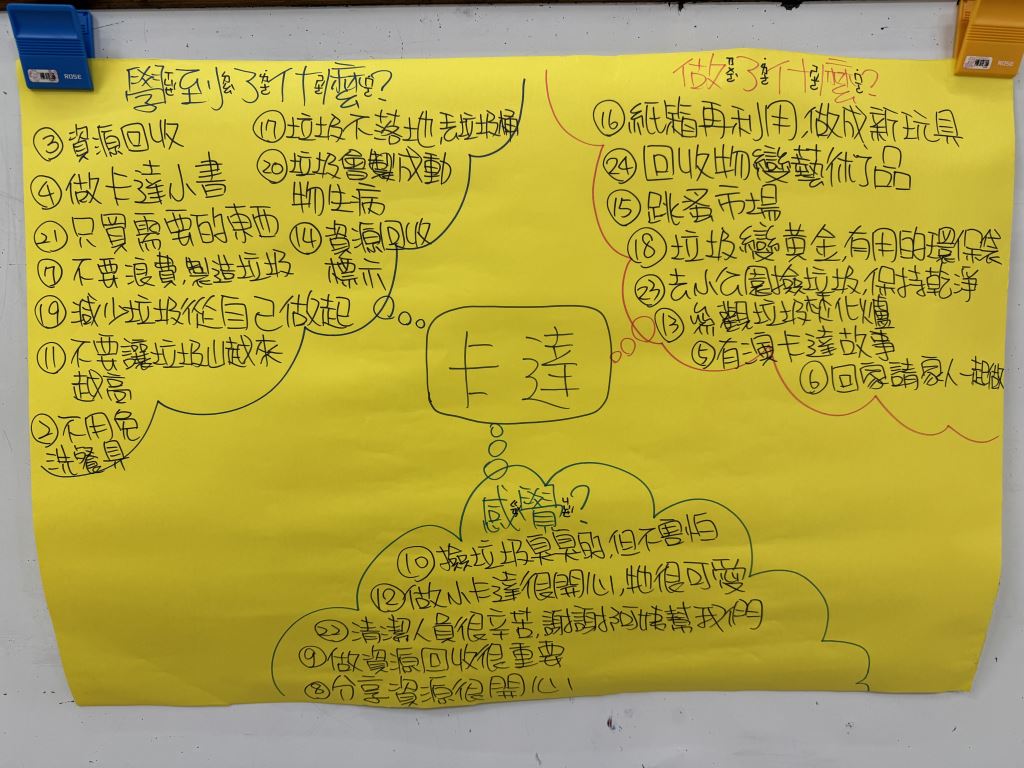 ROSE
ROSE
學到了什麼?
③資源回收
④做卡達小書
㉑只買需要的東西
⑦不要浪費,製造垃圾
⑲減少垃圾從自己做起
⑪不要讓垃圾山越來
越高
②不用免
洗餐具
⑰垃圾不落地丟垃圾桶
⑳垃圾會製成動
物生病
⑭資源回收
標示
做了什麼?
⑯紙箱再利用,做成新玩具
㉔回收物變藝術品
⑮跳蚤市場
⑱垃圾變黃金,有用的環保袋
㉓去小公園撿垃圾,保持乾淨
⑬參觀垃圾焚化爐
⑤有演卡達故事
⑥回家請家人一起做
卡達
感覺?
⑩撿垃圾臭臭的,但不害怕
⑫做小卡達很開心,牠很可愛
㉒清潔人員很辛苦,謝謝阿姨幫我們
⑨做資源回收很重要
⑧分享資源很開心